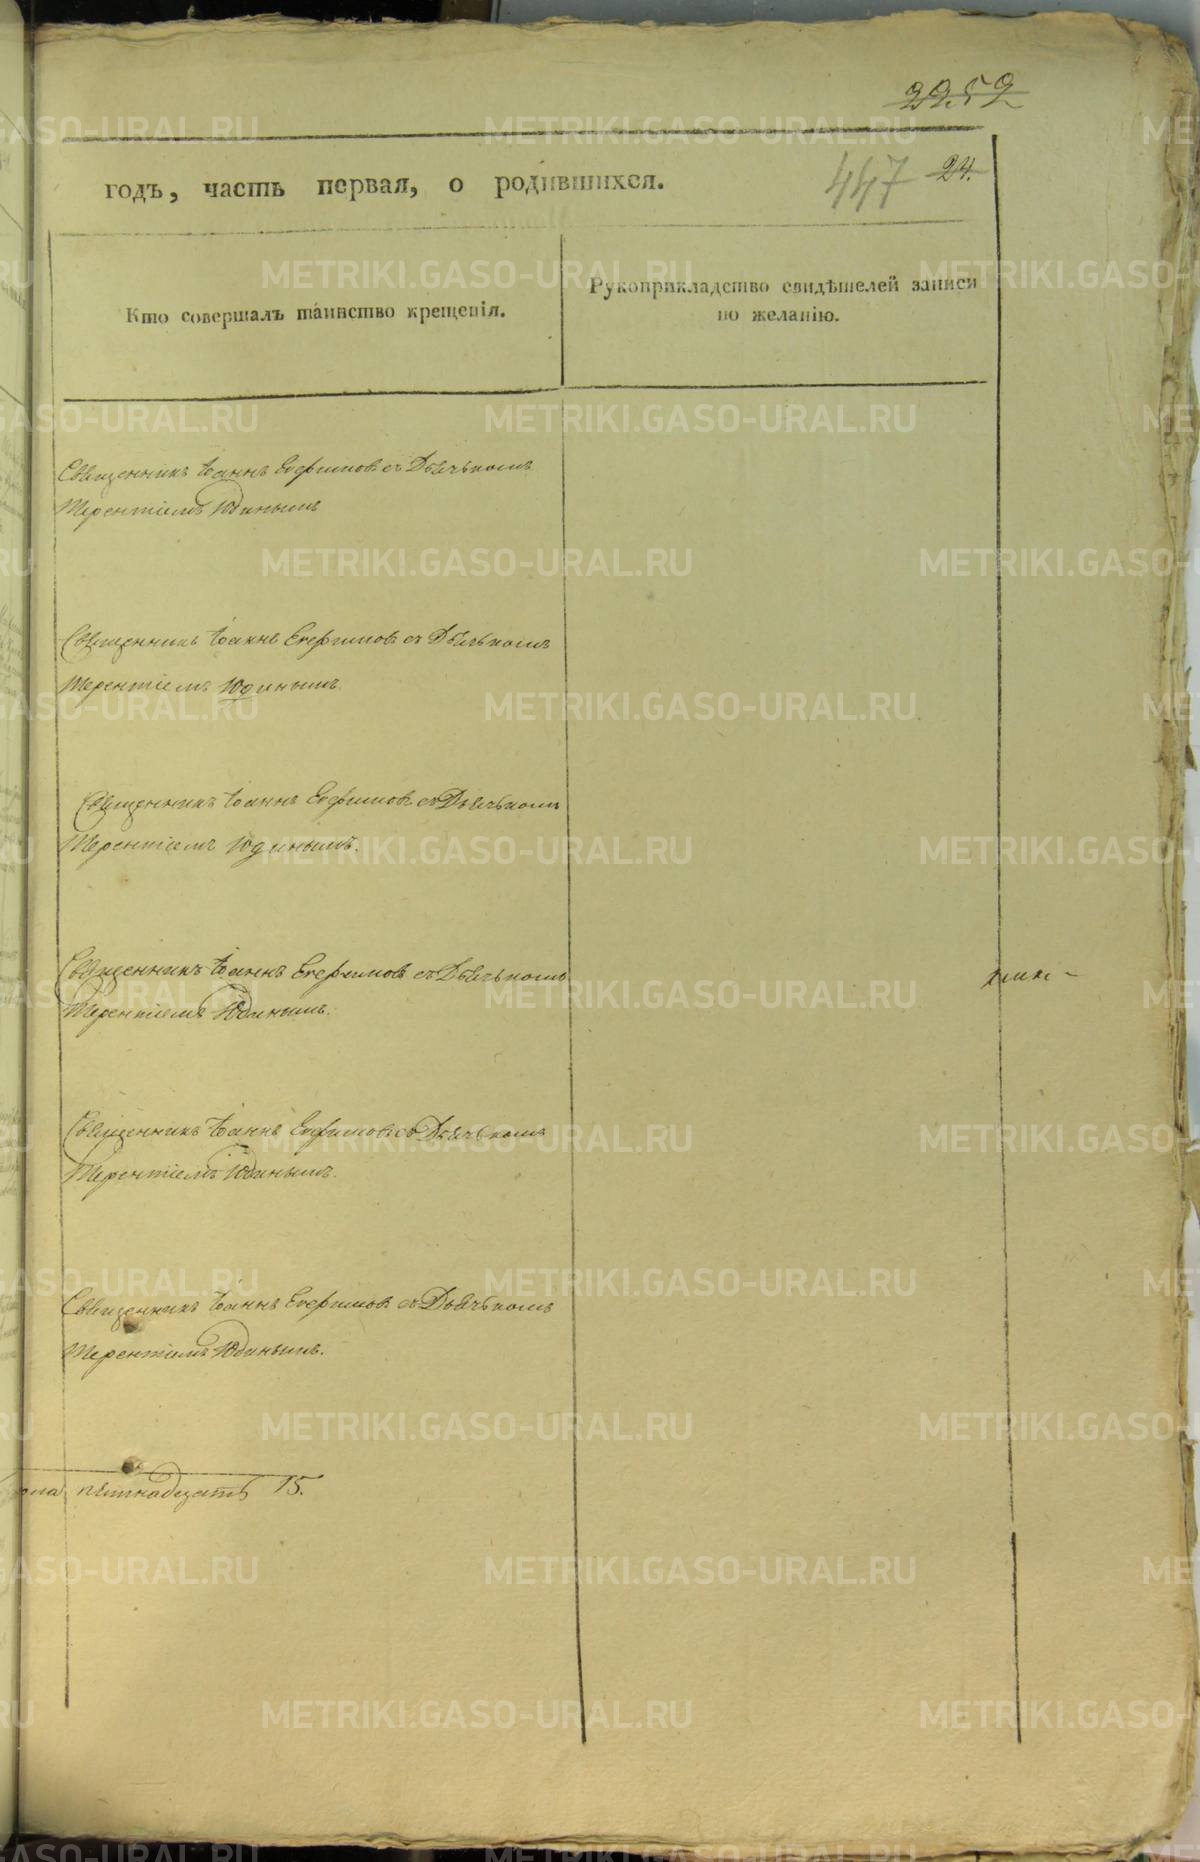 2252
447 24.
годъ, часть первая, о родившихся.
Кто совершалъ таинство крещенія.
Рукоприкладство свидѣтелей записи
по желанію.
Священникъ Іоаннъ Евфимовъ съ Дьячькомъ
Терентіемъ Юдинымъ
Священникъ Іоаннъ Евфимовъ съ Дьячькомъ
Терентіемъ Юдинымъ.
Священникъ Іоаннъ Евфимовъ съ Дьячькомъ
Терентіемъ Юдинымъ.
Священникъ Іоаннъ Евфимовъ съ Дьячькомъ
Терентіемъ Юдинымъ.
Священникъ Іоаннъ Евфимовъ съ Дьячькомъ
Терентіемъ Юдинымъ.
Священникъ Іоаннъ Евфимовъ съ Дьячькомъ
Терентіемъ Юдинымъ.
пятнадцать 15.
METRIKI.GASO-URAL.RU